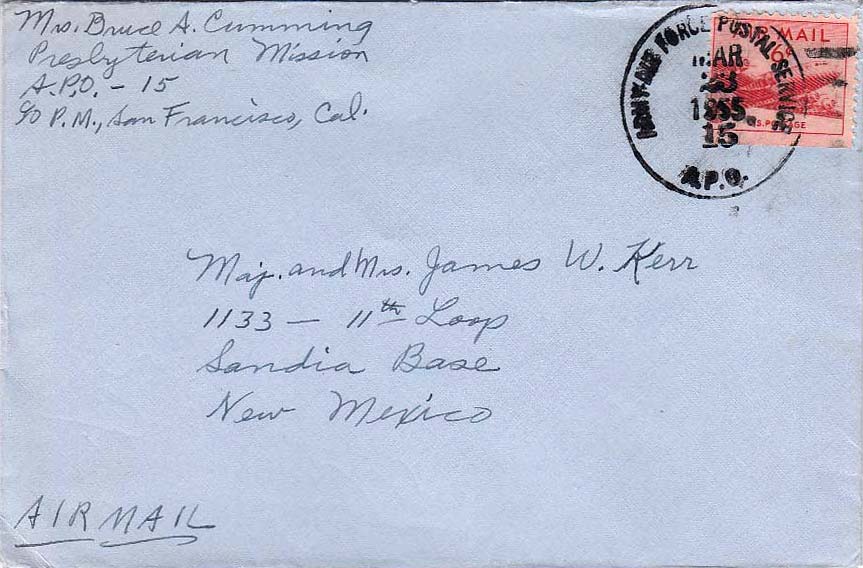 Mrs. Bruce A. Cumming
Presbyterian Mission
A.P.O. - 15
c/o P.M., San Francisco, Cal.
ARMY-AIR FORCE POSTAL SERVICE
MAR
1955
15
A.P.O.
AIR MAIL
6¢
U.S. POSTAGE
Maj. and Mrs. James W. Kerr
1133 — 11th Loop
Sandia Base
New Mexico
AIR MAIL